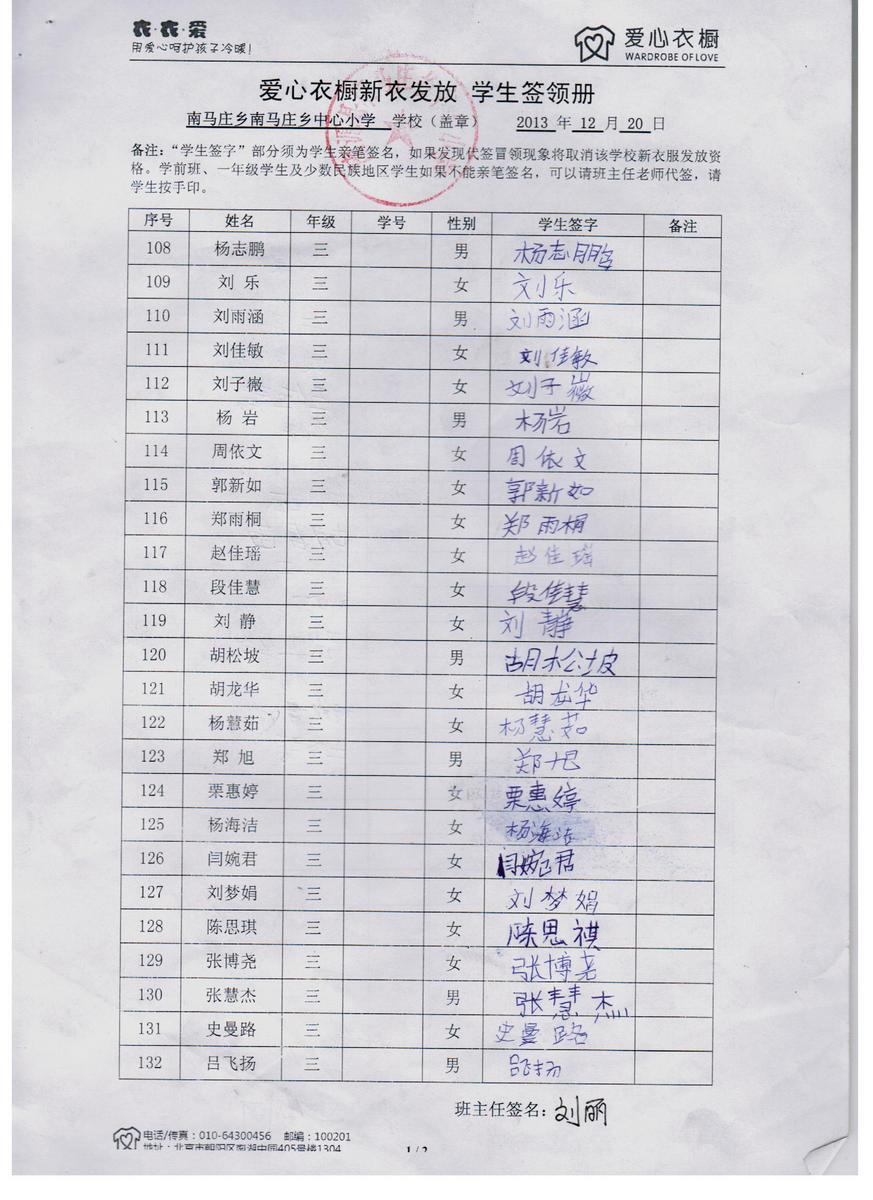 衣·衣·爱
用爱心呵护孩子冷暖!
爱心衣橱
WARDROBE OF LOVE
爱心衣橱新衣发放 学生签领册
南马庄乡南马庄乡中心小学 学校（盖章） 2013 年 12 月 20 日
备注：“学生签字”部分须为学生亲笔签名，如果发现代签冒领现象将取消该学校新衣服发放资
格。学前班、一年级学生及少数民族地区学生如果不能亲笔签名，可以请班主任老师代签，请
学生按手印。
序号 姓名 年级 学号 性别 学生签字 备注
108 杨志鹏 三 男 杨志鹏
109 刘 乐 三 女 刘乐
110 刘雨涵 三 男 刘雨涵
111 刘佳敏 三 女 刘佳敏
112 刘子薇 三 女 刘子薇
113 杨 岩 三 男 杨岩
114 周依文 三 女 周依文
115 郭新如 三 女 郭新如
116 郑雨桐 三 女 郑雨桐
117 赵佳瑶 三 女 赵佳瑶
118 段佳慧 三 女 段佳慧
119 刘 静 三 女 刘静
120 胡松坡 三 男 胡松坡
121 胡龙华 三 女 胡龙华
122 杨慧茹 三 女 杨慧茹
123 郑 旭 三 男 郑旭
124 栗惠婷 三 女 栗惠婷
125 杨海洁 三 女 杨海洁
126 闫婉君 三 女 闫婉君
127 刘梦娟 三 女 刘梦娟
128 陈思琪 三 女 陈思祺
129 张博尧 三 女 张博尧
130 张慧杰 三 男 张慧杰
131 史曼路 三 女 史曼路
132 吕飞扬 三 男 吕飞扬
班主任签名：刘丽
电话/传真：010-64300456 邮编：100201
地址：北京市朝阳区南湖中园405号楼1304
1 / 2